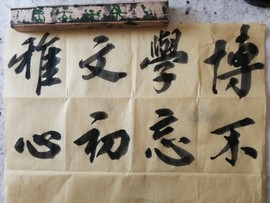 博學文雅
不忘初心